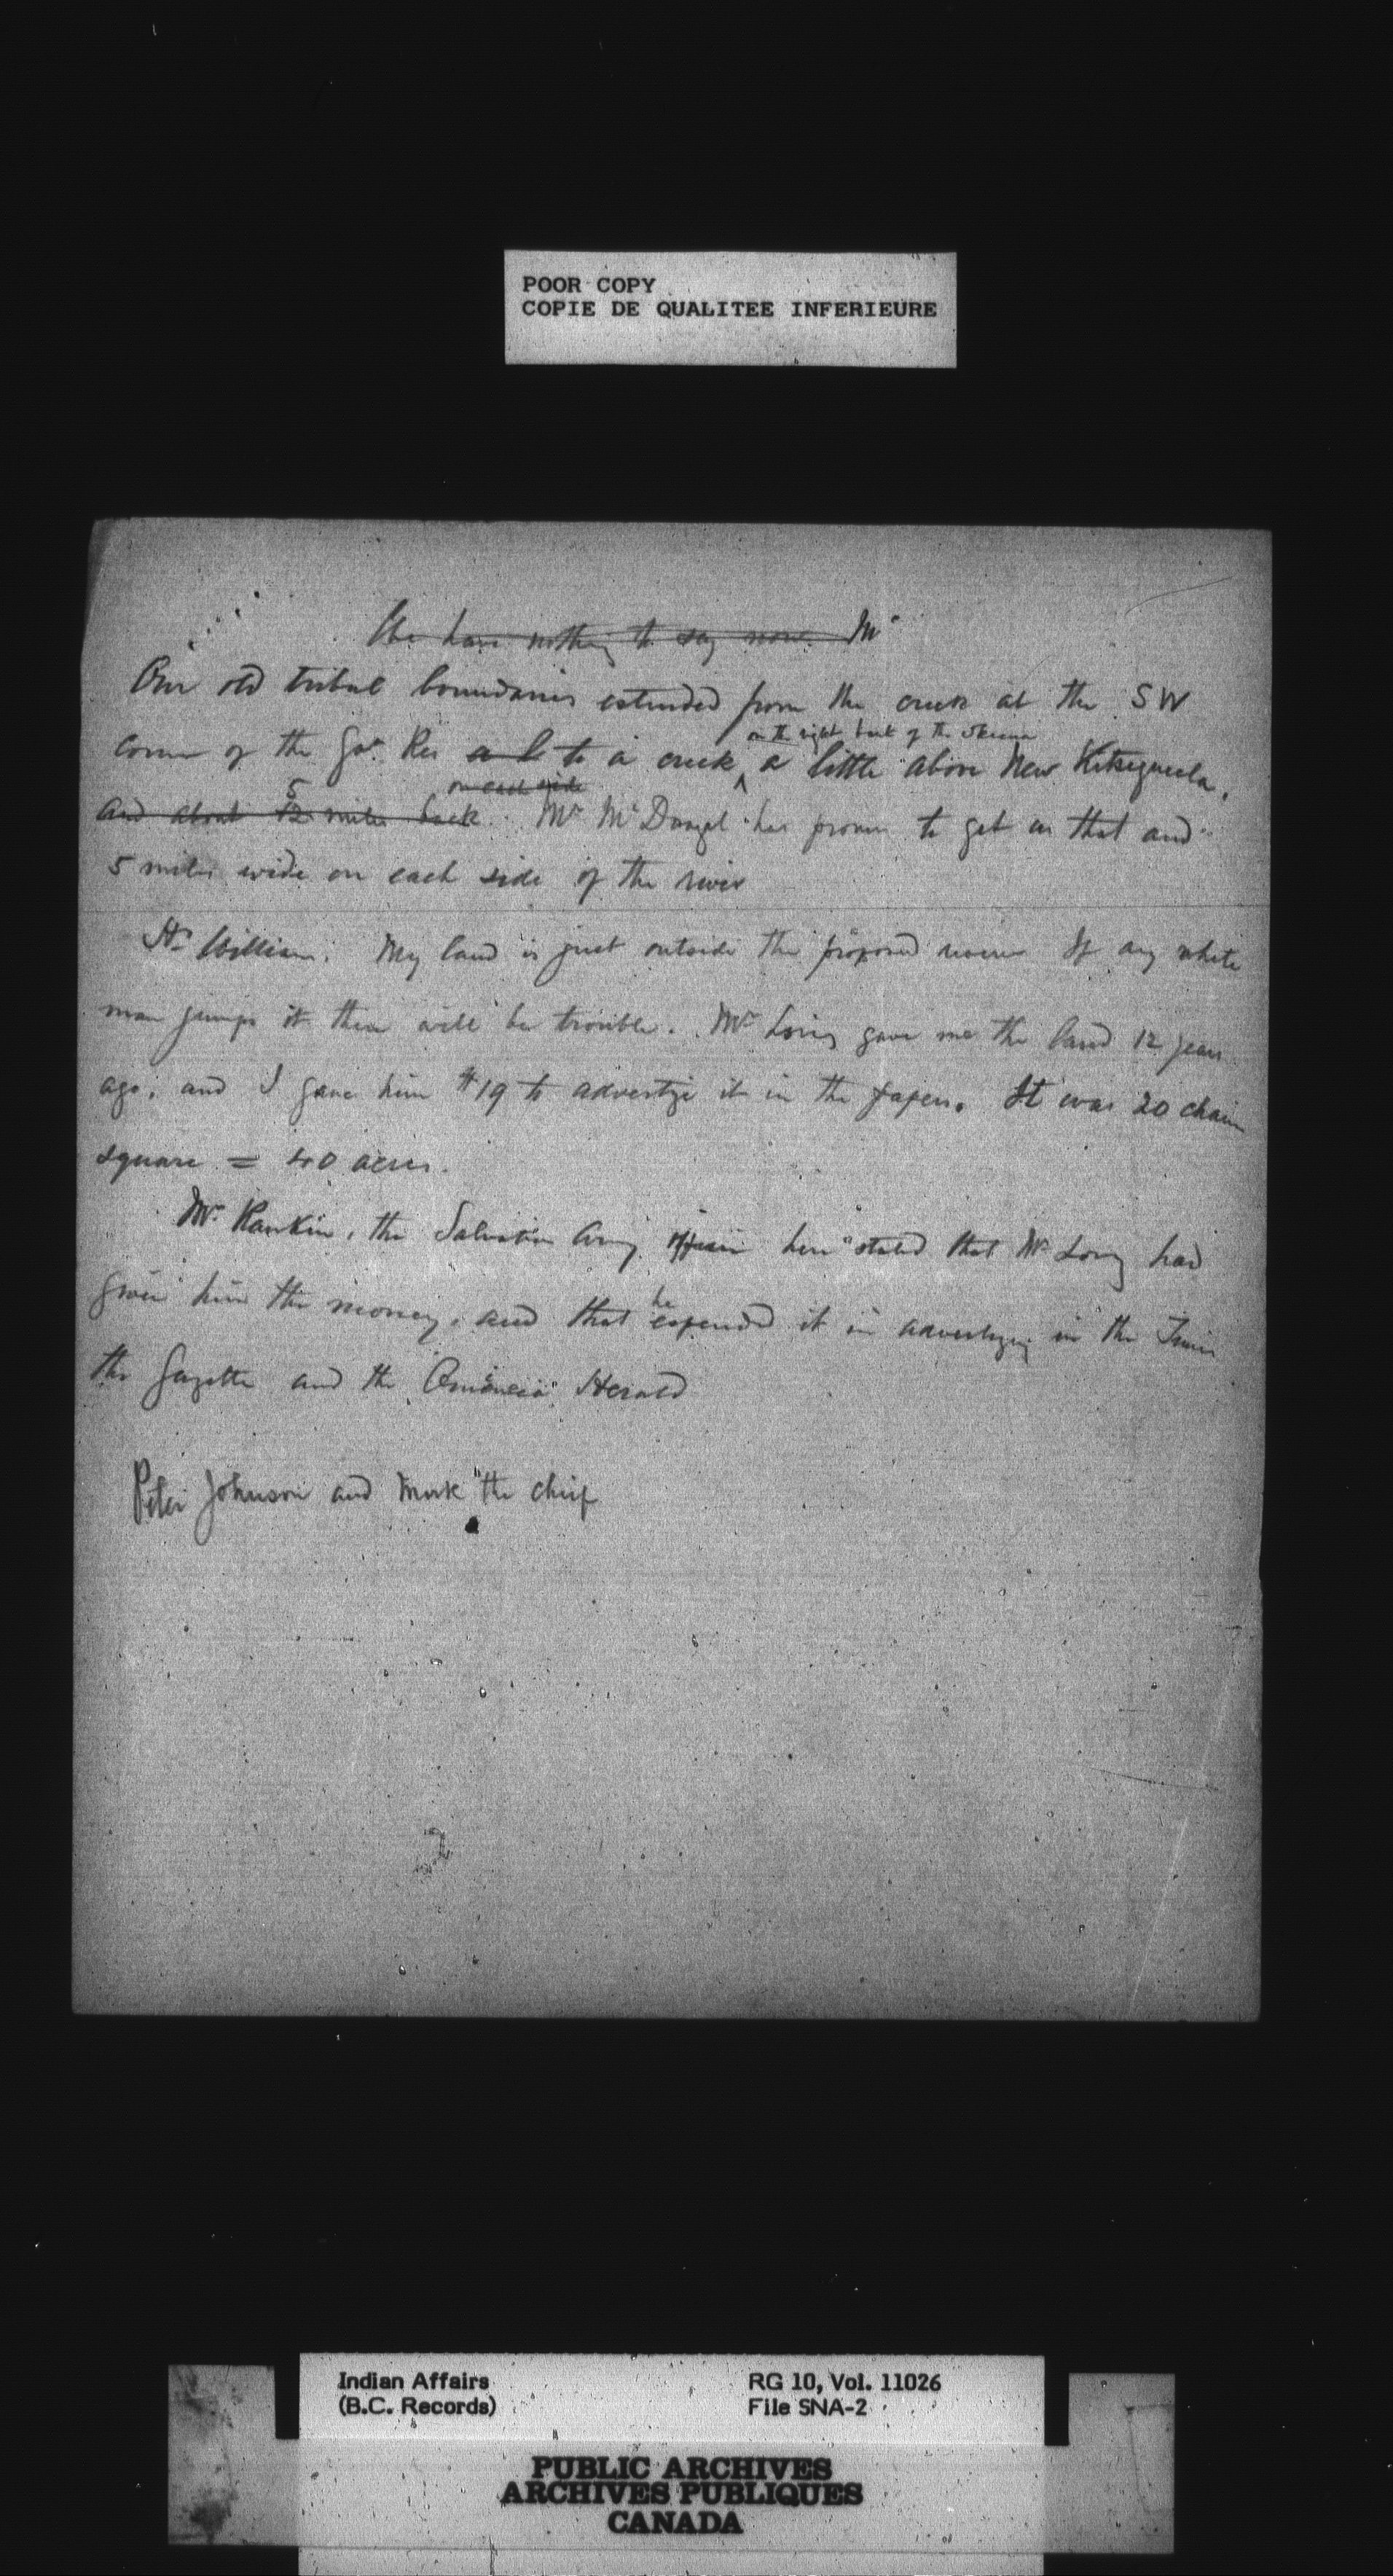 POOR COPY
COPIE DE QUALITEE INFERIEURE
We have nothing to say now. Mr
Our old tribal boundaries extended from the creek at the SW
on the right bank of the Skeena
corner of the Gov. Res to a creek a little above New Kitseguecla,
5 on each side
and about 12 miles back. Mr McDougal has promised to get us that and
5 miles wide on each side of the river
William. My land is just outside the proposed reserve If any white
man jumps it there will be trouble. Mr Loring gave me the land 12 years
ago, and I gave him $19 to advertize it in the papers. It was 20 chains
square = 40 acres.
Mr Rankin, the Salvation Army officer here stated that Mr Loring had
given him the money, and that he expended it in advertizing in the
the Gazette and the Omineca Herald
Peter Johnson and Mark the chief
Indian Affairs
(B.C. Records)
RG 10, Vol. 11026
File SNA-2
PUBLIC ARCHIVES
ARCHIVES PUBLIQUES
CANADA